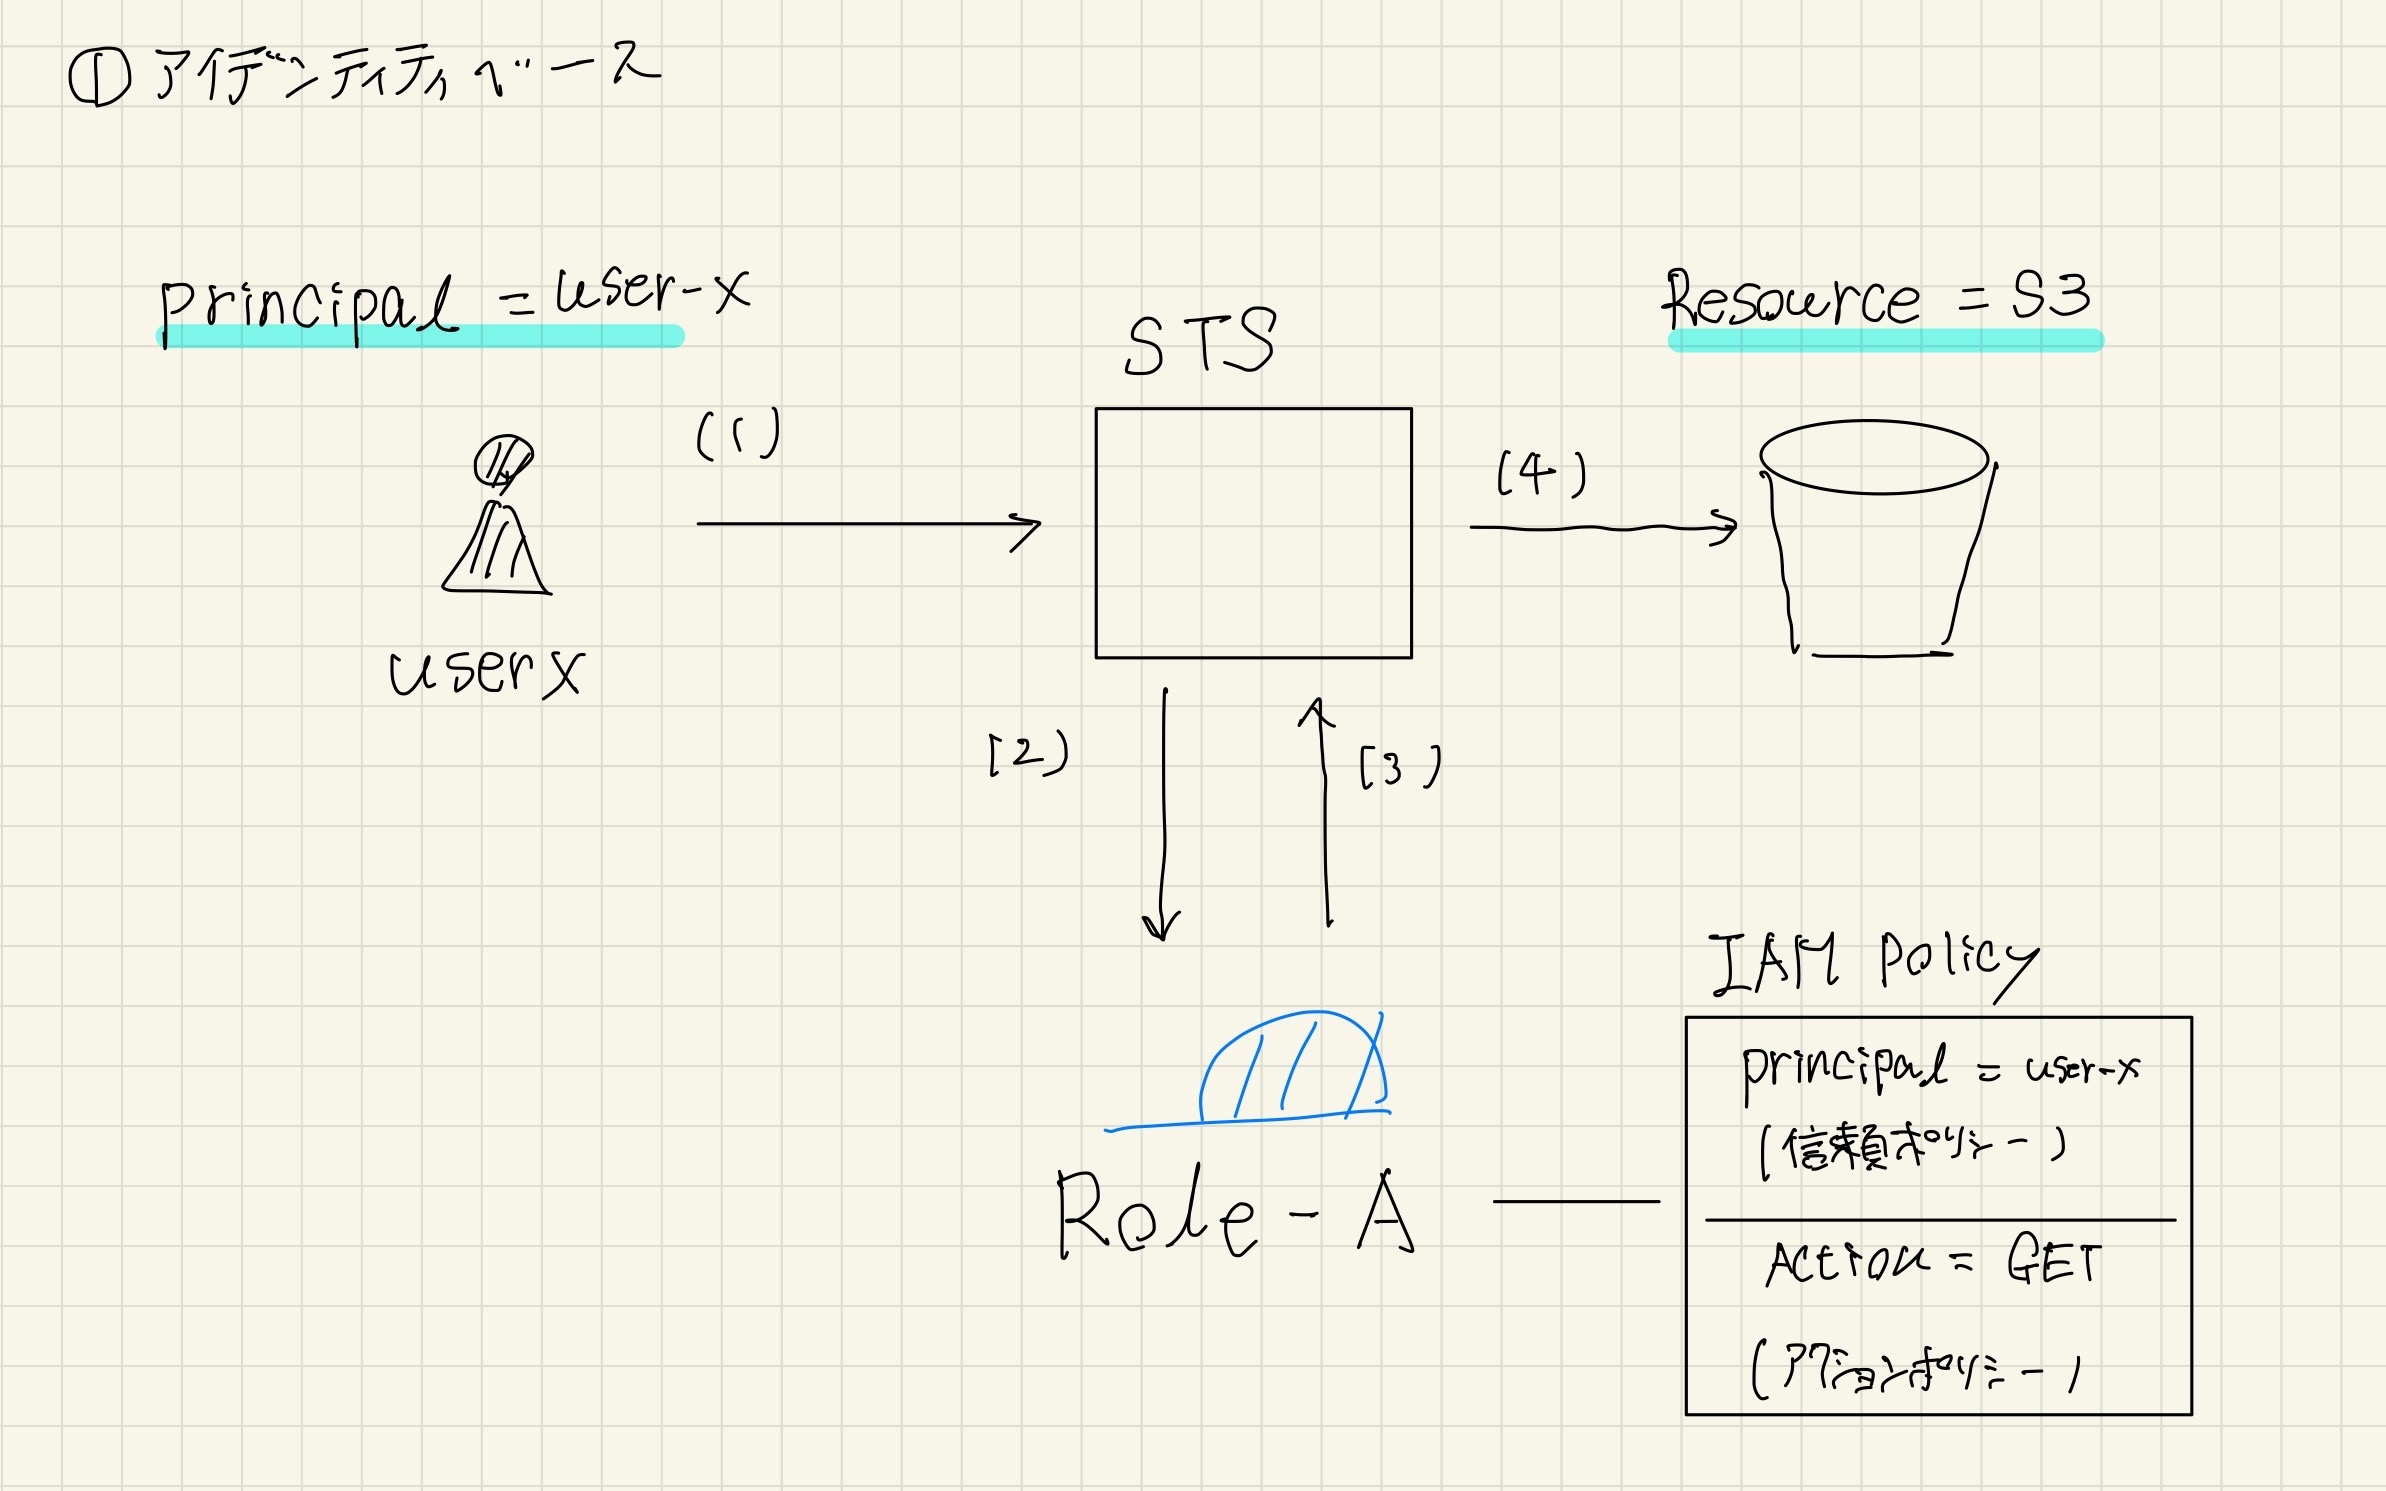 ① アイデンティティベース
principal = user-x
Resource = S3
STS
(1)
(4)
userx
(2)
(3)
IAM policy
principal = user-x
(信頼ポリシー)
Role-A
Action = GET
(アクションポリシー)